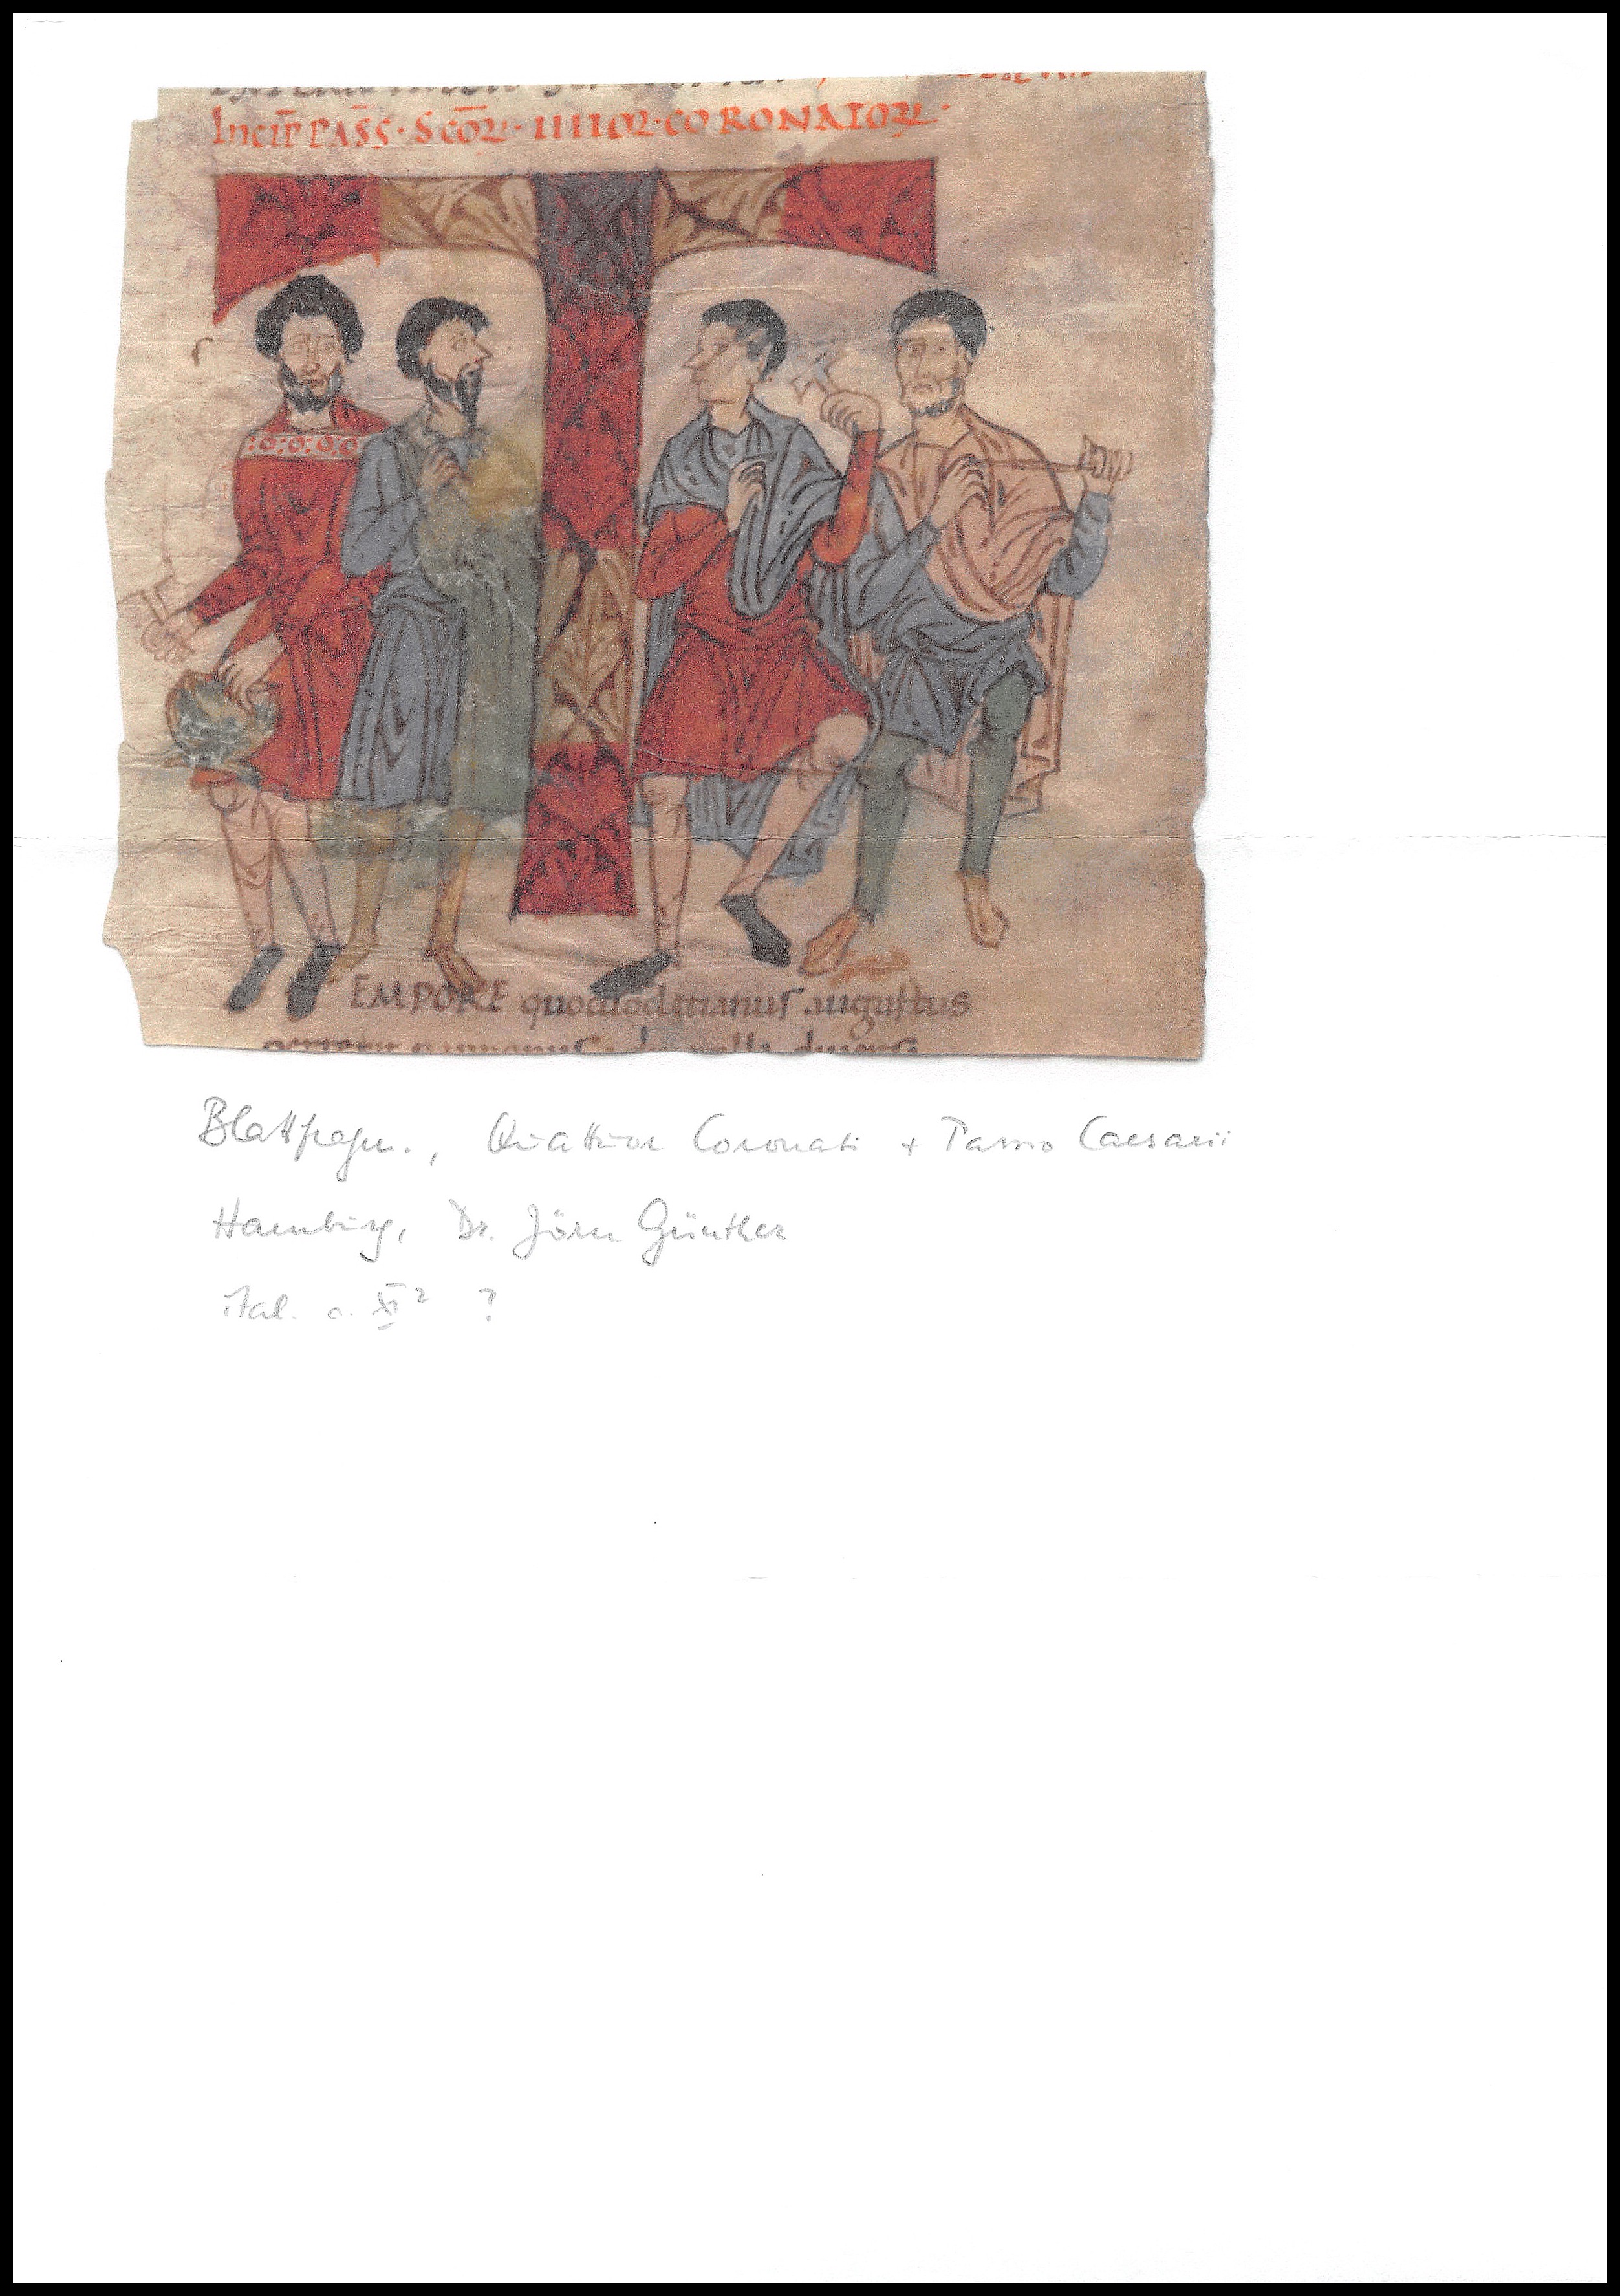 Incip̅ PASS̅ · S̅CO̅RꝜ · IIIIOR · CORONATORꝜ ·
T
EMPORE quo dioclecianus augustus
Blattfragm., Quattuor Coronati + Passio Caesarii
Hamburg, Dr. Jörn Günther
ital. s. XI² ?